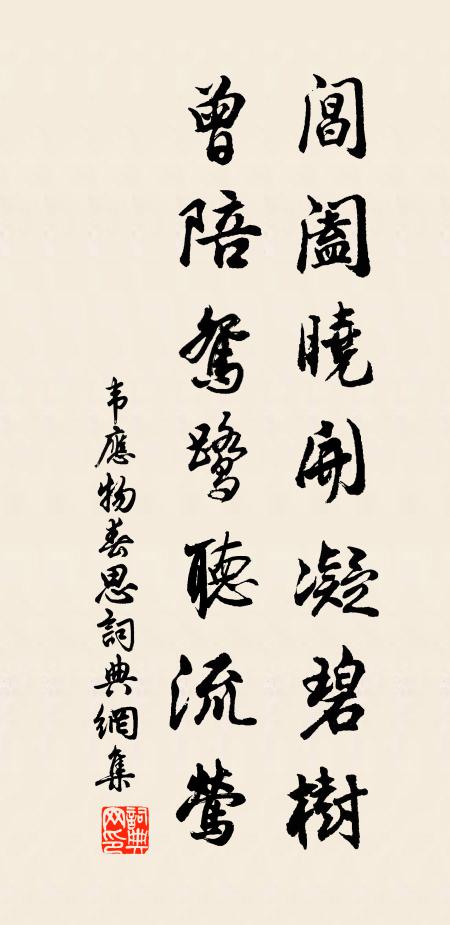 閶闔曉開凝碧樹
曾陪鴛鷺聽流鶯
韦應物春思詞典網集
詞典
网印